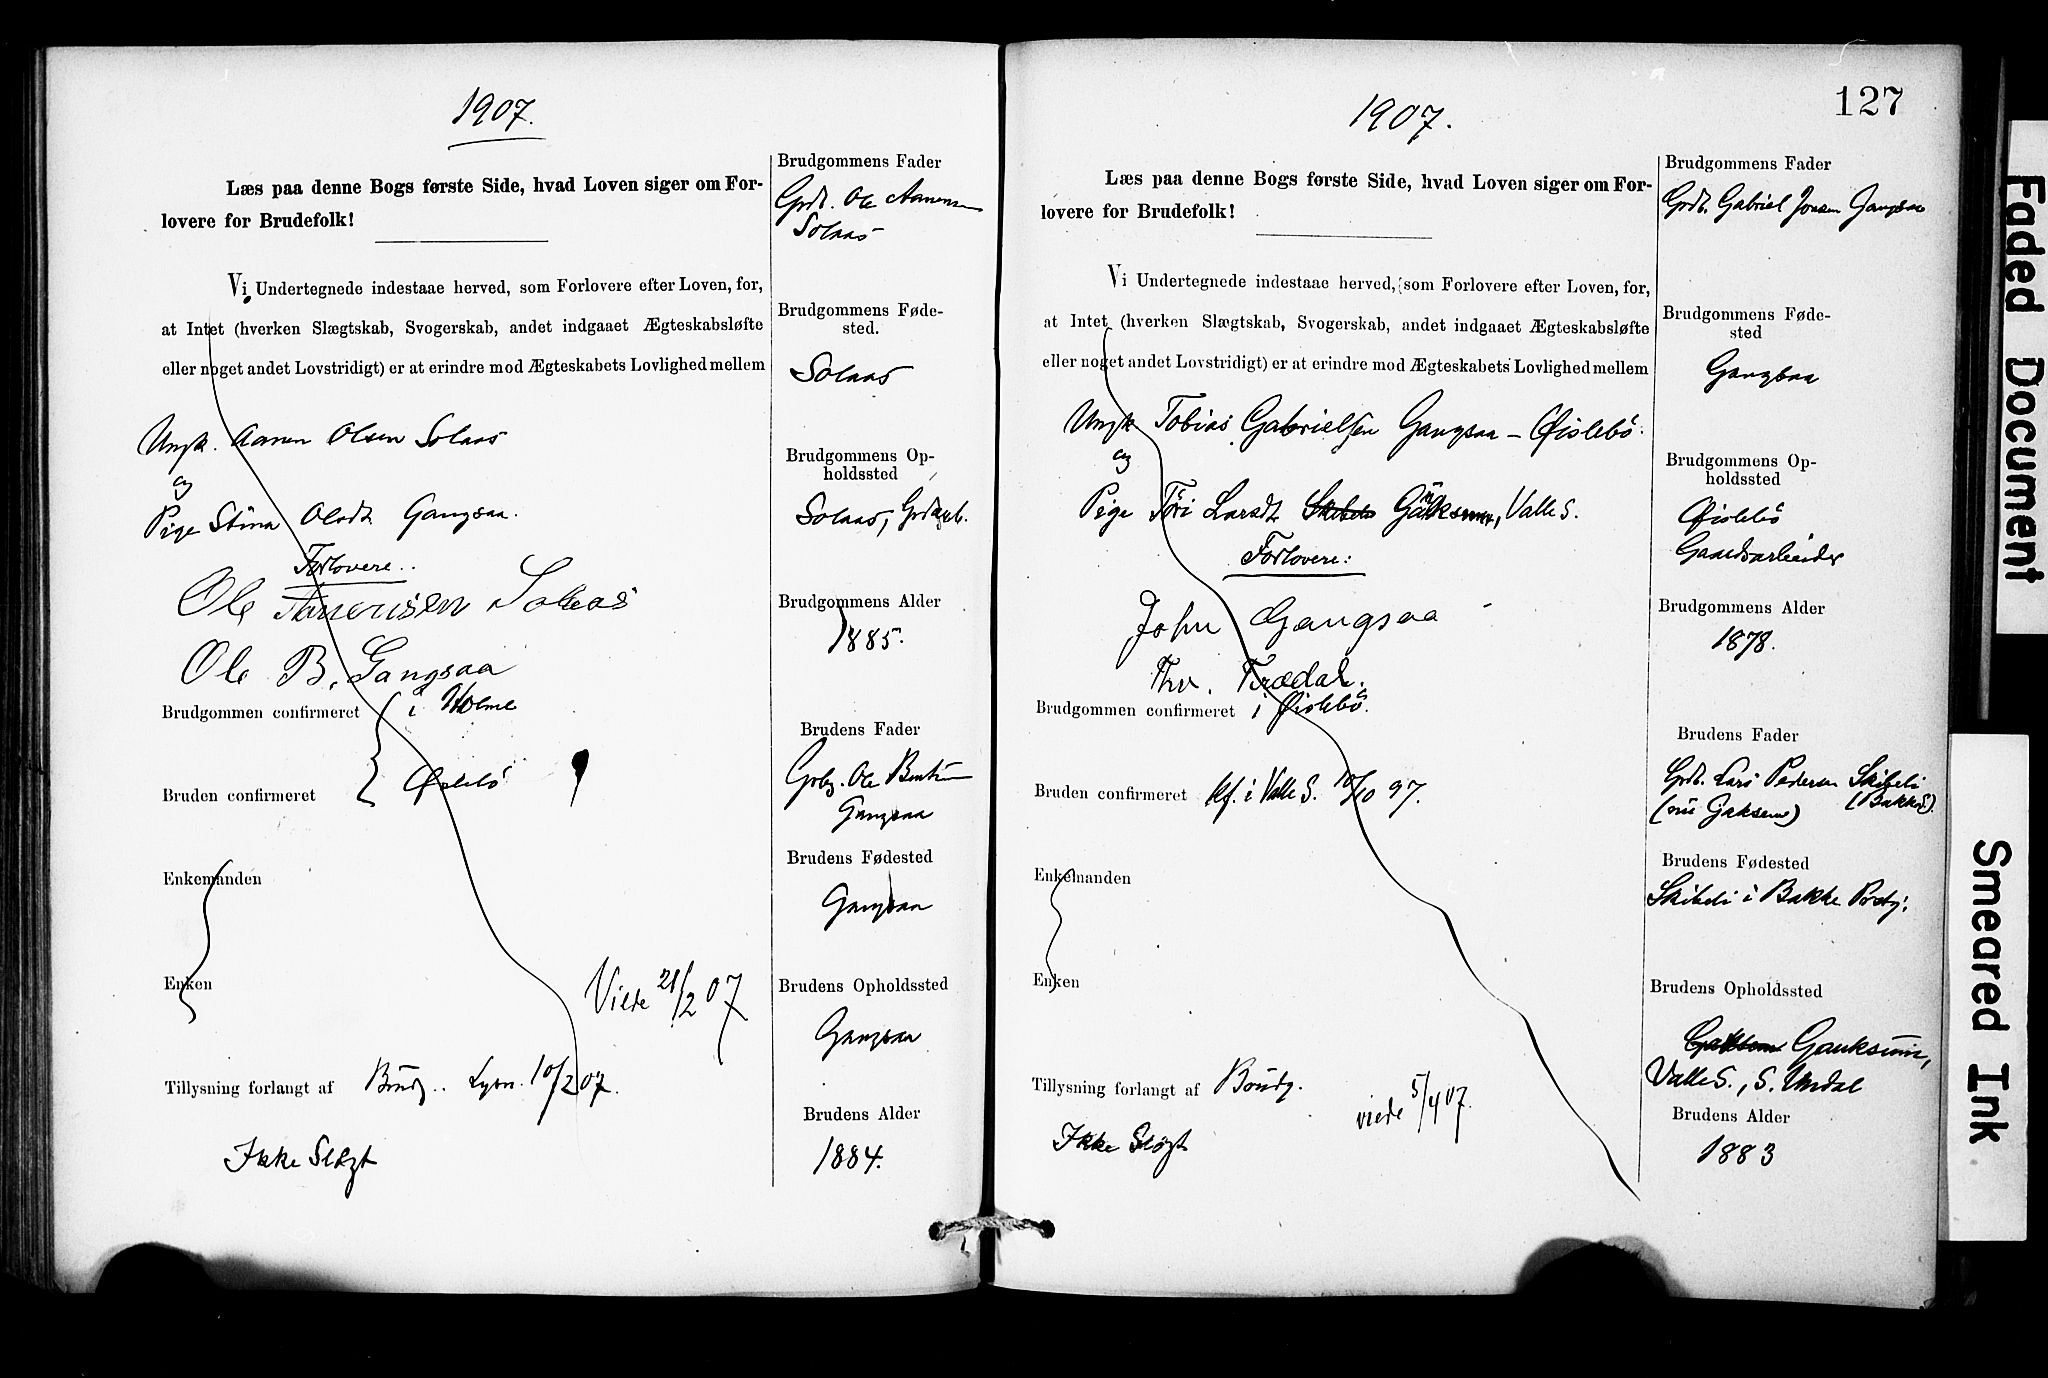 1907.
Læs paa denne Bogs første Side, hvad Loven siger om For-
lovere for Brudefolk!
Vi Undertegnede indestaae herved, som Forlovere efter Loven, for,
at Intet (hverken Slægtskab, Svogerskab, andet indgaaet Ægteskabsløfte
eller noget andet Lovstridigt) er at erindre mod Ægteskabets Lovlighed mellem
Ungk. Aanen Olsen Solaas
og
Pige Stina Olsdt. Gangsaa.
Forlovere..
Ole Aanensen Solaas
Ole B. Gangsaa
Brudgommen confirmeret i Holme
Bruden confirmeret Øislebö
Enkemanden
Enken
Viede 21/2 07
Tillysning forlangt af Brudg.. Lysn. 10/2 07.
Ikke Slægt
Brudgommens Fader
Grdb. Ole Aanensen
Solaas
Brudgommens Føde-
sted.
Solaas
Brudgommens Op-
holdssted
Solaas,
Brudgommens Alder
1885.
Brudens Fader
Grbg. Ole Bentsen
Gangsaa
Brudens Fødested
Gangsaa
Brudens Opholdssted
Gangsaa
Brudens Alder
1884.
127
1907.
Læs paa denne Bogs første Side, hvad Loven siger om For-
lovere for Brudefolk!
Vi Undertegnede indestaae herved, som Forlovere efter Loven, for,
at Intet (hverken Slægtskab, Svogerskab, andet indgaaet Ægteskabsløfte
eller noget andet Lovstridigt) er at erindre mod Ægteskabets Lovlighed mellem
Ungk Tobias Gabrielsen Gangsaa – Øislebö.
og
Pige Töri Larsdt. Valle S.
Forlovere:
John Gangsaa
Thv. Trædal.
Brudgommen confirmeret i Øislebö.
Bruden confirmeret kf. i Valle S. 10/10 97.
Enkemanden
Enken
Tillysning forlangt af Brudg.
viede 5/4 07.
Ikke Slægt
Brudgommens Fader
Grdb. Gabriel Jonsen Gangsaa
Brudgommens Føde-
sted
Gangsaa
Brudgommens Op-
holdssted
Øislebö
Gaardsarbeider
Brudgommens Alder
1878.
Brudens Fader
Grdb. Lars Pedersen Skibeli
(nu Gaksem) (Bakke).
Brudens Fødested
Skibeli i Bakke Prstg.
Brudens Opholdssted
Gauksum,
Valle S., S. Undal
Brudens Alder
1883
Faded Document
Smeared Ink